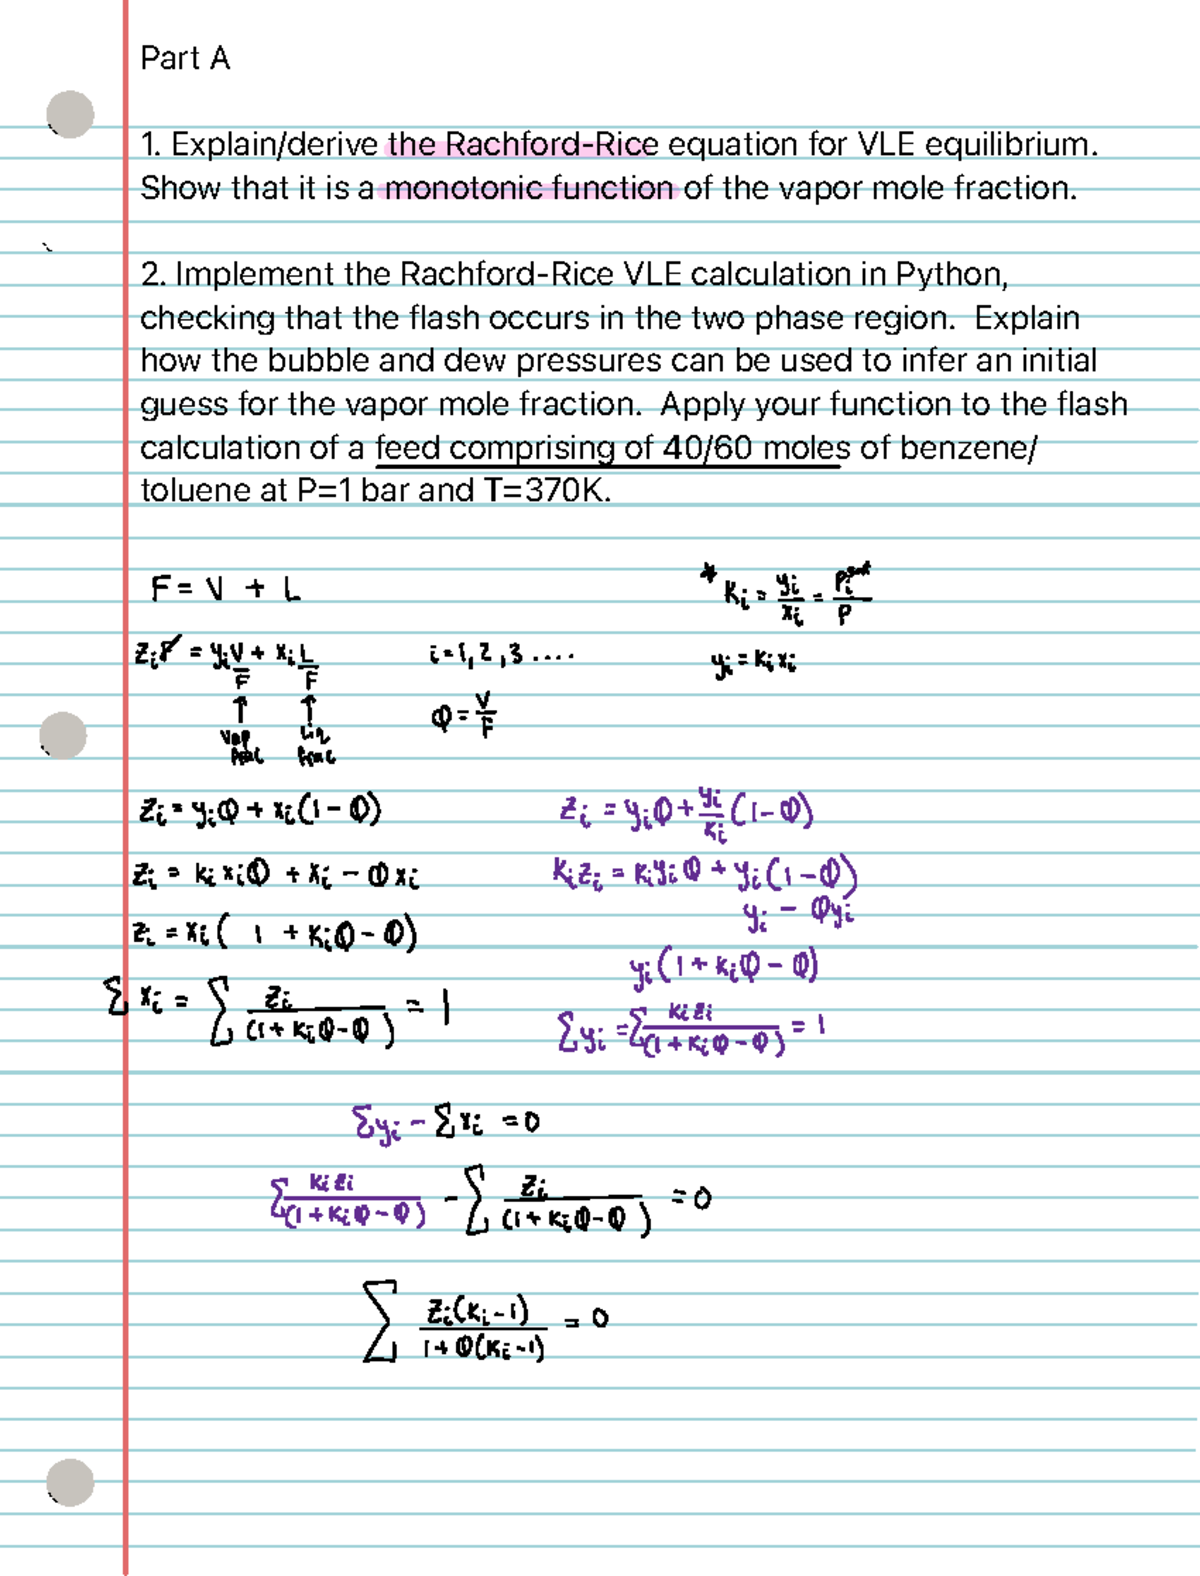 Part A
1. Explain/derive the Rachford-Rice equation for VLE equilibrium.
Show that it is a monotonic function of the vapor mole fraction.
2. Implement the Rachford-Rice VLE calculation in Python,
checking that the flash occurs in the two phase region. Explain
how the bubble and dew pressures can be used to infer an initial
guess for the vapor mole fraction. Apply your function to the flash
calculation of a feed comprising of 40/60 moles of benzene/
toluene at P=1 bar and T=370K.
F = V + L
* Ki = yi/xi = Pi^sat/P
ziF = yi V/F + xi L/F
i = 1, 2, 3 ....
yi = Ki xi
↑ ↑
Vap frac
Liq frac
Φ = V/F
zi = yiΦ + xi(1 - Φ)
zi = yiΦ + yi/Ki (1 - Φ)
zi = Ki xiΦ + xi - Φxi
Kizi = KiyiΦ + yi(1 - Φ)
yi - Φyi
zi = xi( 1 + KiΦ - Φ)
yi(1 + KiΦ - Φ)
Σ xi = Σ zi/(1 + KiΦ - Φ) = 1
Σyi = Σ Kizi/(1 + KiΦ - Φ) = 1
Σyi - Σxi = 0
Σ Kizi/(1 + KiΦ - Φ) - Σ zi/(1 + KiΦ - Φ) = 0
Σ zi(Ki - 1)/1 + Φ(Ki - 1) = 0